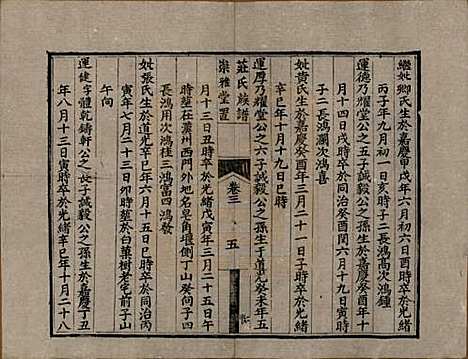 繼妣卿氏生於嘉慶甲戌年六月初六日酉時卒於光緒
丙子年九月初一日亥時子二長鴻高次鴻鍾
運德乃耀堂公之五子誠毅公之孫生于嘉慶癸酉年十
月十四日戌時卒於同治癸酉閏六月十九日寅時
子二長鴻瀾次鴻喜
妣黃氏生於嘉慶癸酉年三月二十一日子時卒於光緒
辛巳年十月十九日巳時
運厚乃耀堂公之六子誠毅公之孫生于道光癸未年五
莊氏族譜
崇雅堂
卷三
五
月十三日丑時卒於光緒戊寅年三月二十五日午
時塟在漢州西門外地名皂角堰側丁山癸向子四
長鴻用次鴻桂三鴻富四鴻發
妣張氏生於道光辛巳年六月十五日巳時卒於同治丙
寅年七月二十三日卯時塟於白菓樹老宅前子山
午向
運健字體乾鑄軒公之長子誠毅公之孫生於嘉慶丁丑
年八月十三日寅時卒於光緒辛巳年十月二十八